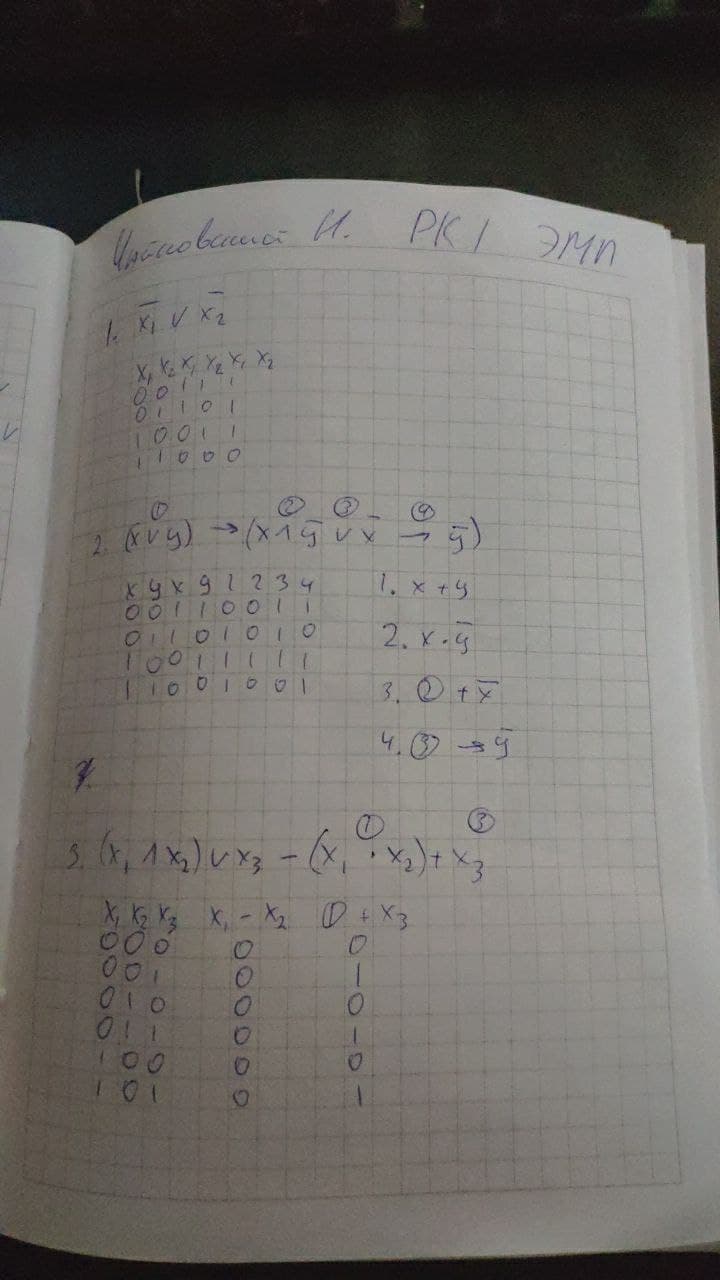 И. РК 1 ЭМП
1. x̅₁ ∨ x̅₂
x₁ x₂ x₁ x₂ x₁ x₂
0 0 1 1 1
0 1 1 0 1
1 0 0 1 1
1 1 0 0 0
① ② ③ ④
2. (x∨y) → (x∧y̅ ∨ x̅ → y̅)
x y x y 1 2 3 4 1. x + y
0 0 1 1 0 0 1 1
0 1 1 0 1 0 1 0 2. x · y̅
1 0 0 1 1 1 1 1
1 1 0 0 1 0 0 1 3. ② + x̅
4. ③ → y̅
① ③
3. (x₁ ∧ x₂) ∨ x₃ – (x₁ · x₂) + x₃
x₁ x₂ x₃ x₁ – x₂ ① + x₃
0 0 0 0 0
0 0 1 0 1
0 1 0 0 0
0 1 1 0 1
1 0 0 0 0
1 0 1 0 1